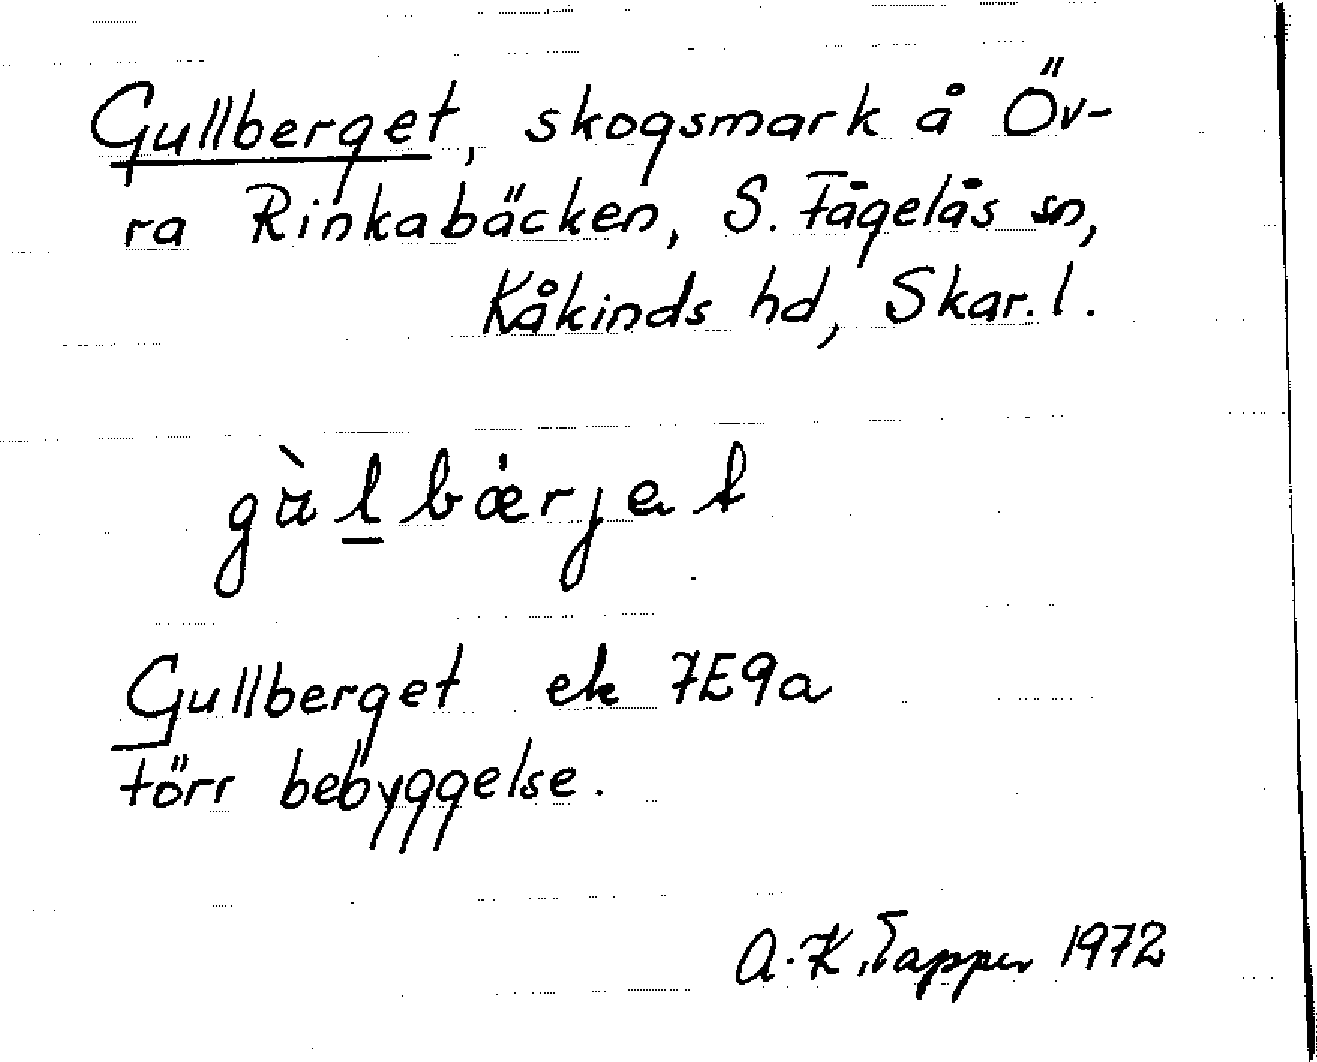 Gullberget, skogsmark å Öv-
ra Rinkabäcken, S. Fågelås sn,
Kåkinds hd, Skar. l.
gùlbærjet
Gullberget ek 7E9a
törr bebyggelse.
A.-K. Tapper 1972